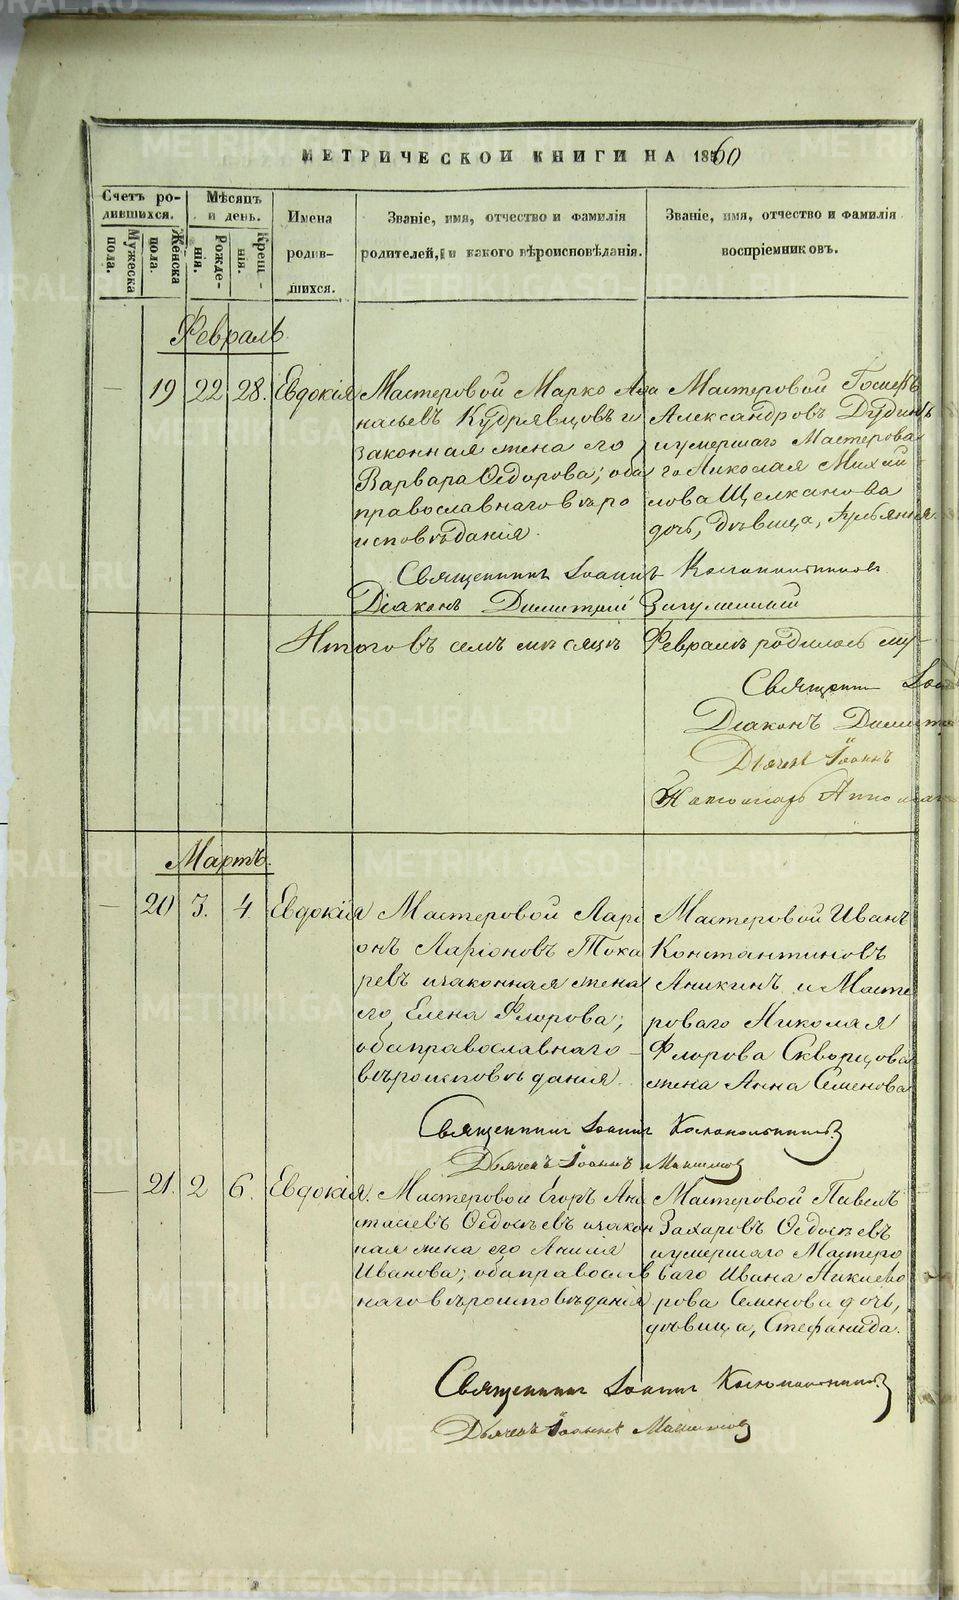 МЕТРИЧЕСКОЙ КНИГИ НА 1860
Счетъ ро-
дившихся.
Мужеска
пола.
Женска
пола.
Мѣсяцъ
и день.
Рожде-
нія.
Крещ-
нія.
Имена
родив-
шихся.
Званіе, имя, отчество и фамилія
родителей, и какого вѣроисповѣданія.
Званіе, имя, отчество и фамилія
воспріемниковъ.
Февраль
— 19 22 28. Евдокія
Мастеровой Марко Афа
насьевъ Кудрявцовъ и
законная жена его
Варвара Ѳедорова; оба
православнаго вѣро
исповѣданія.
Мастеровой
Александровъ Дудинъ
и умершаго Мастерова
го Николая Михай
лова Щелканова
дочь, дѣвица,
Священникъ Іоаннъ
Діаконъ Димитрій
Итого въ семъ мѣсяцѣ Февралѣ родилось му-
Священн
Діаконъ
Дьячекъ Іоаннъ
Пономарь
Мартъ.
— 20 3. 4 Евдокія
Мастеровой Лари
онъ Ларіоновъ Тока
ревъ и законная жена
его, Елена Флорова;
оба православнаго
вѣроисповѣданія.
Мастеровой Иванъ
Константиновъ
Аникинъ и Масте
роваго Николая
Флорова Скворцова
жена Анна Семенова
Священникъ Іоаннъ
Дьячекъ Іоаннъ
— 21. 2 6. Евдокія.
Мастеровой Егоръ Ана
Ѳедосѣевъ и закон
ная жена его
Иванова; оба правосла
внаго вѣроисповѣданія
Мастеровой Павелъ
Захаровъ Ѳедосѣевъ
и умершаго Мастеро
ваго Ивана Никиево
рова Семенова дочь,
дѣвица, Стефанида.
Священникъ Іоаннъ
Дьячекъ Іоаннъ
METRIKI.GASO-URAL.RU